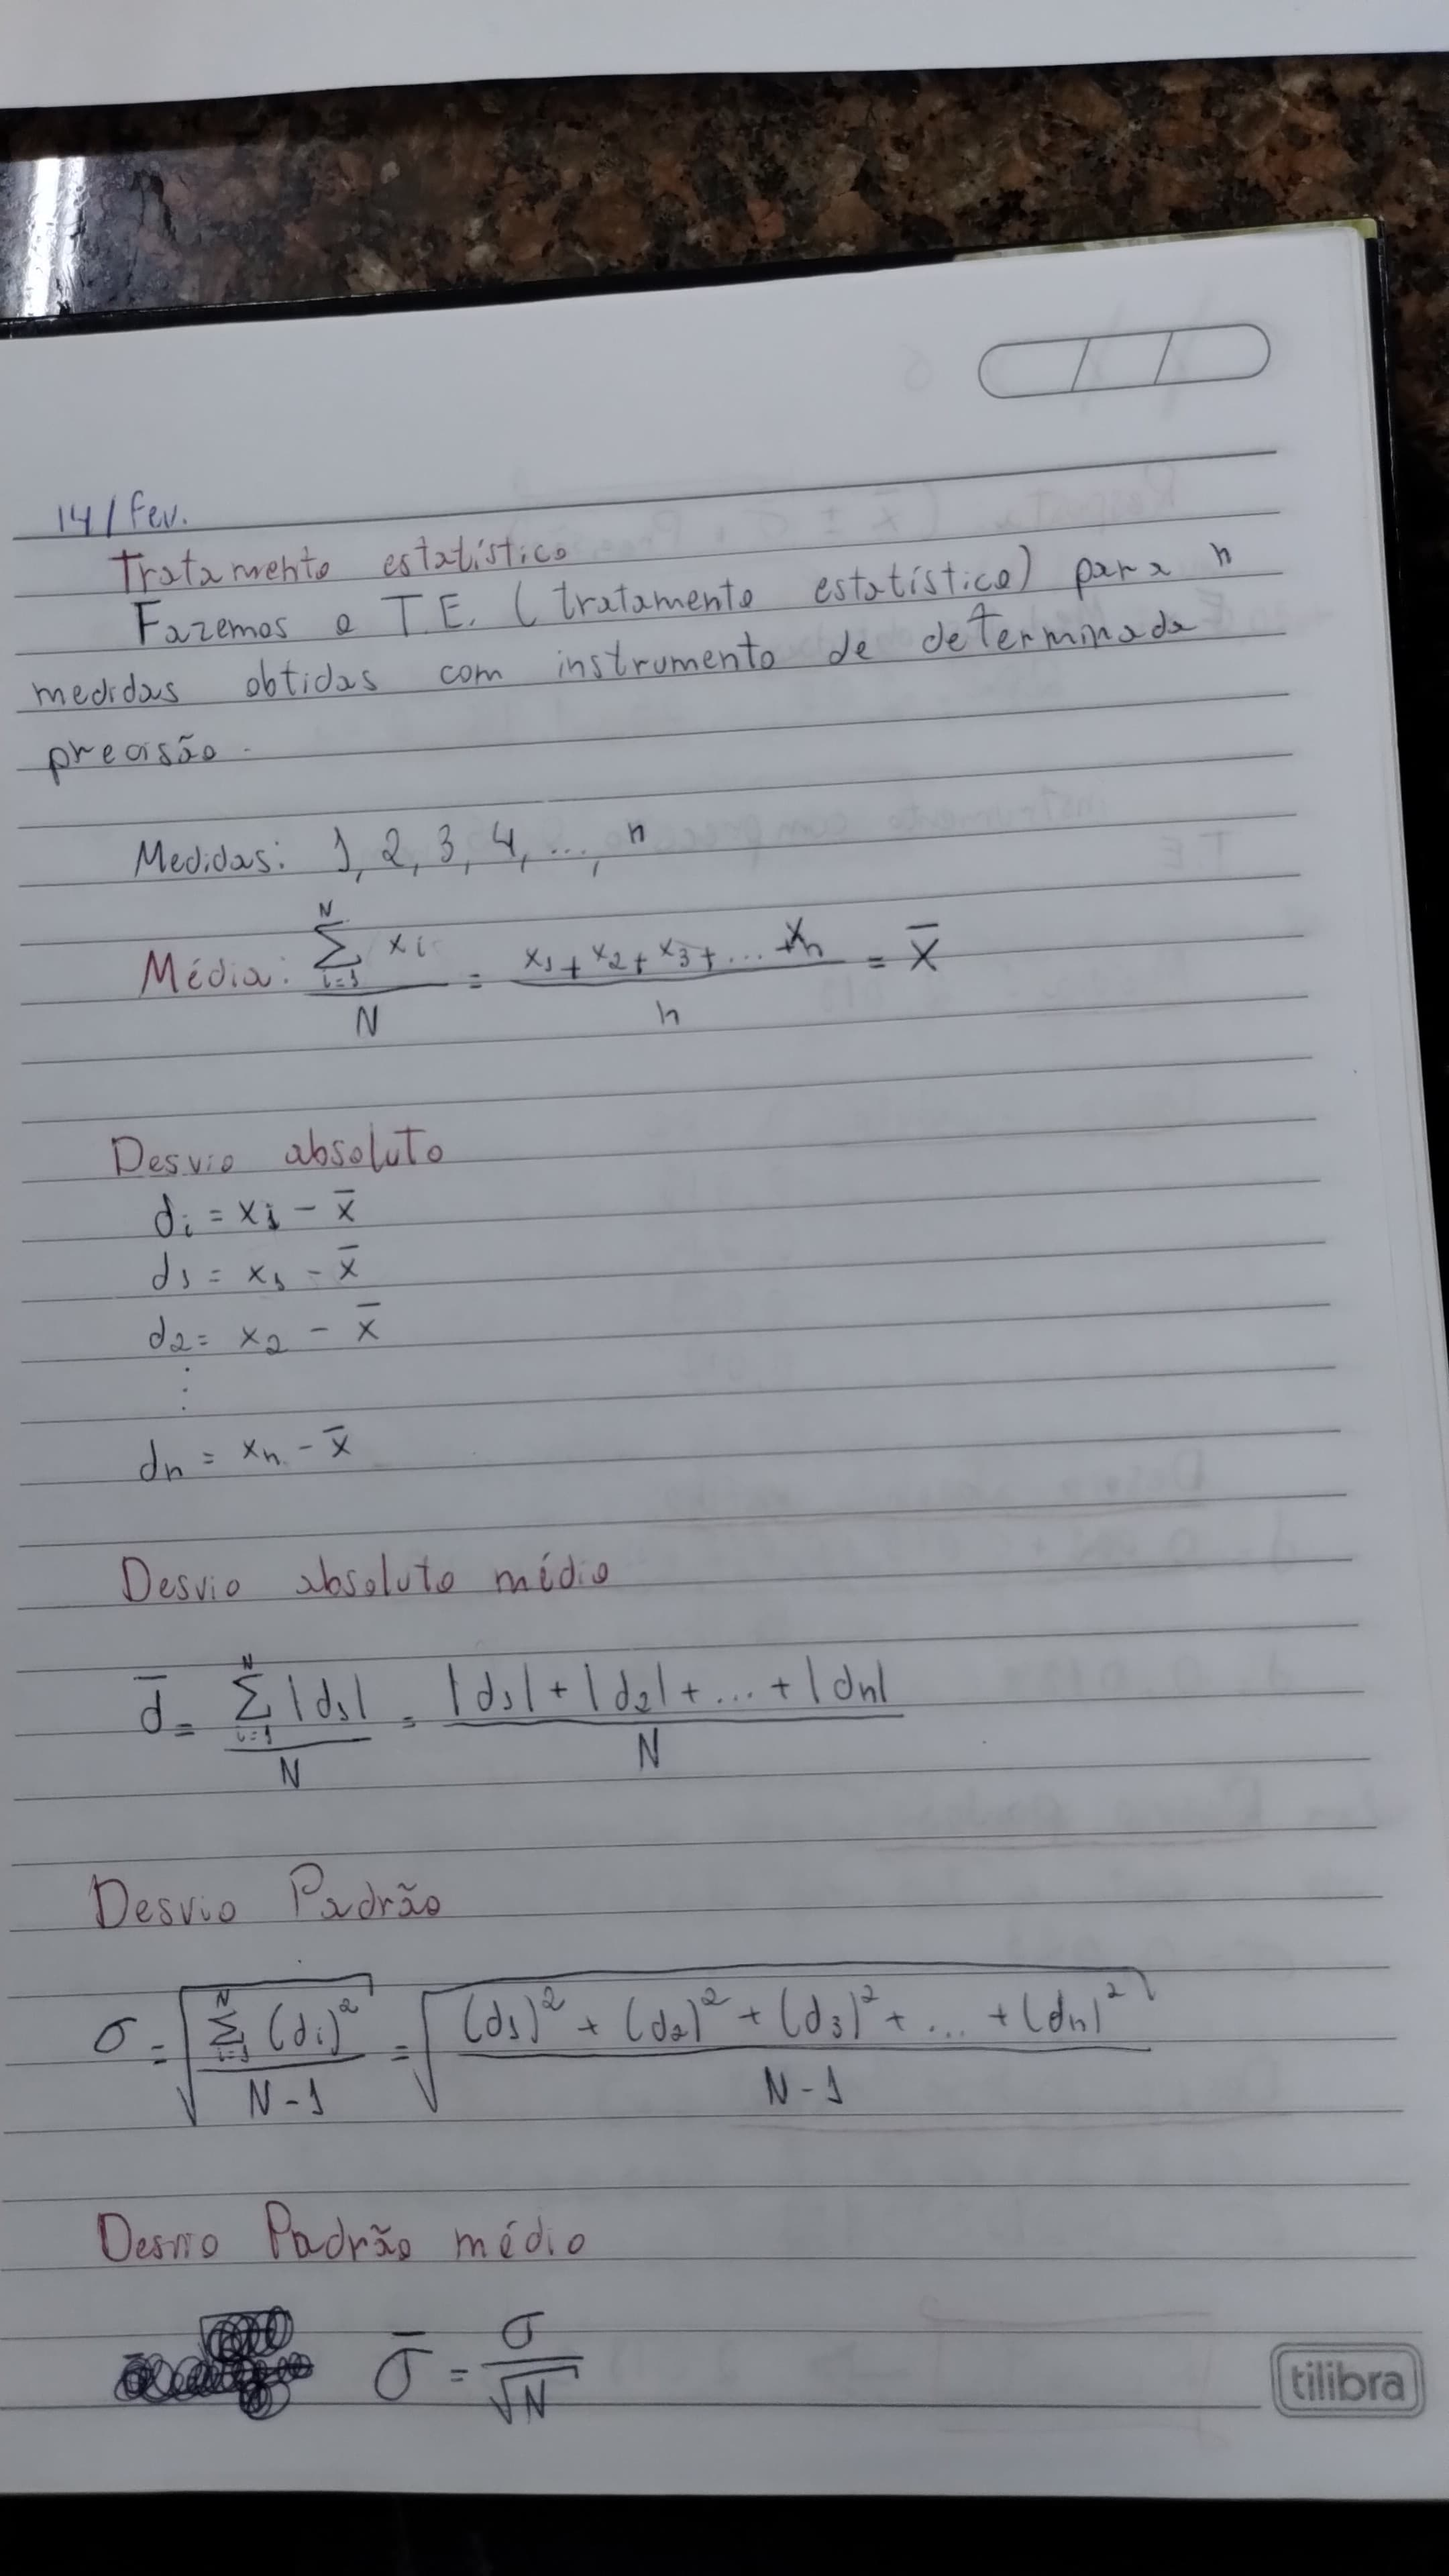 14/Fev.
Tratamento estatístico
Fazemos o T.E. (tratamento estatístico) para n
medidas obtidas com instrumento de determinada
precisão.
Medidas: 1, 2, 3, 4, ..., n
Média: \frac{\sum_{i=1}^{N} xi}{N} = \frac{x_1 + x_2 + x_3 + ... + x_n}{n} = \bar{x}
Desvio absoluto
d_i = x_i - \bar{x}
d_1 = x_1 - \bar{x}
d_2 = x_2 - \bar{x}
⋮
d_n = x_n - \bar{x}
Desvio absoluto médio
\bar{d} = \frac{\sum_{i=1}^{N} |d_1|}{N} = \frac{|d_1| + |d_2| + ... + |d_n|}{N}
Desvio Padrão
σ = \sqrt{\frac{\sum_{i=1}^{N} (d_i)^2}{N-1}} = \sqrt{\frac{(d_1)^2 + (d_2)^2 + (d_3)^2 + ... + (d_n)^2}{N-1}}
Desvio Padrão médio
\bar{σ} = \frac{σ}{\sqrt{N}}
tilibra